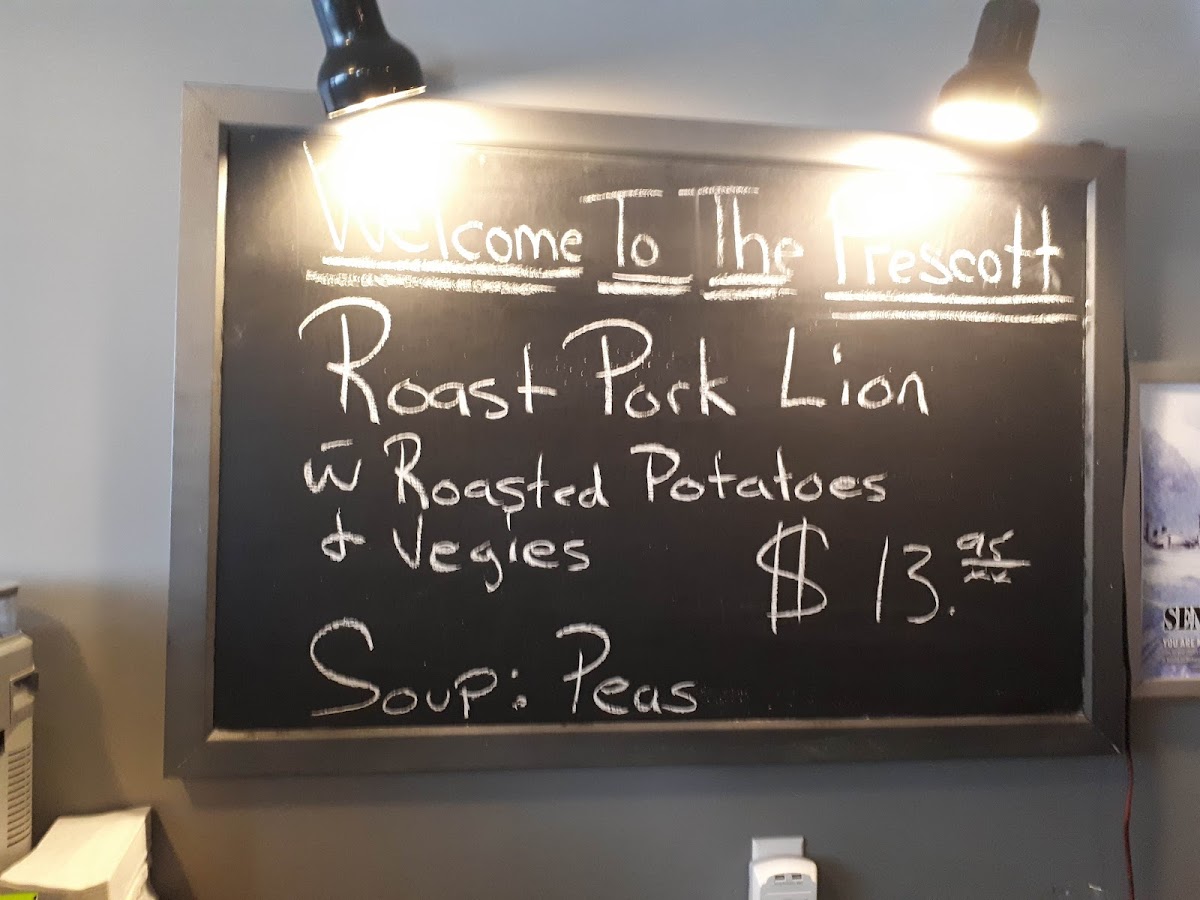 Welcome To The Prescott
Roast Pork Lion
w̄ Roasted Potatoes
& Vegies
$ 13.95/xx
Soup: Peas
SEN
YOU ARE